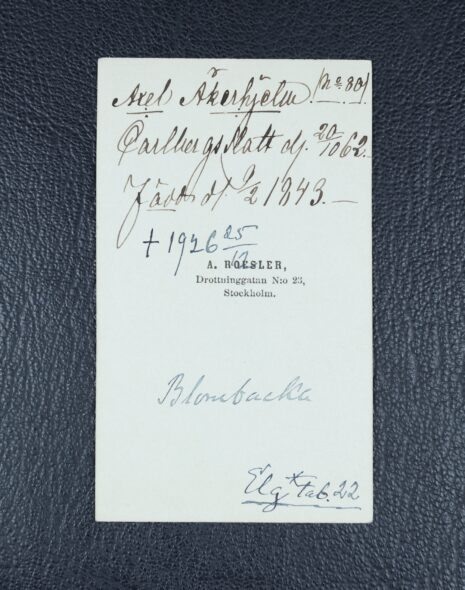 Axel Åkerhjelm. (No 80)
Carlbergs Slott d. 20/10 62.
Född d. 9/2 1843. —
+ 1926 25/12
A. ROESLER,
Drottninggatan N:o 23,
Stockholm.
Blombacka
Elg* tab. 22